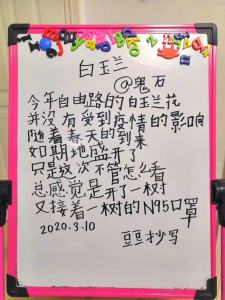 白玉兰
@鬼石
今年自由路的白玉兰花
并没有受到疫情的影响
随着春天的到来
如期地盛开了
只是这次不管怎么看
总感觉是开了一树
又接着一树的N95口罩
2020.3.10
豆豆抄写